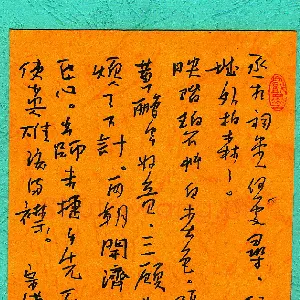 丞相祠堂何處尋。
城外柏森森。
映階碧草自春色。
黃鸝空好音。三顧
煩天下計。兩朝開濟
臣心。出師未捷身先
使英雄淚滿襟。